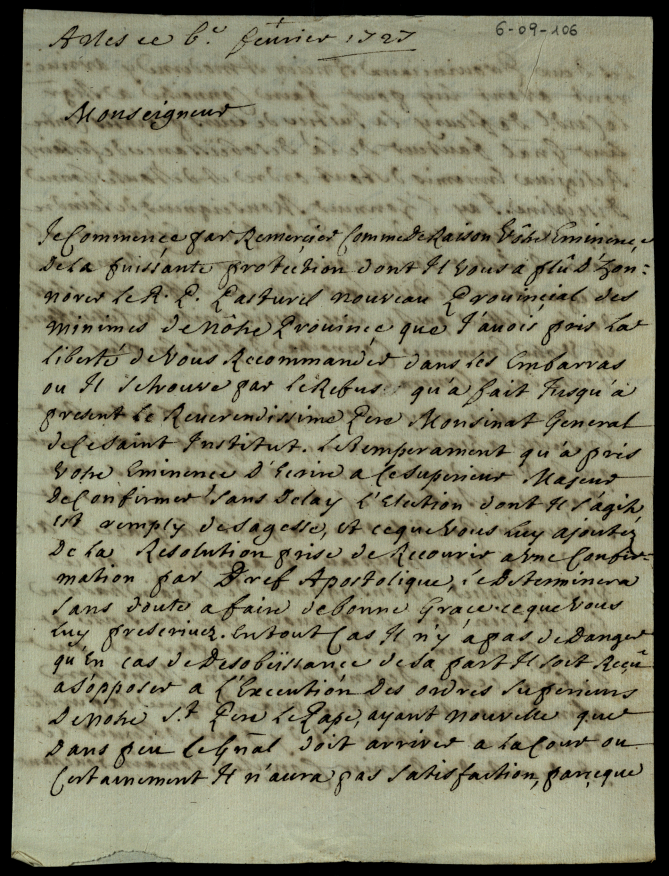 6-09-106
Arles ce 6.e février 1727
Monseigneur
Je Commence par Remercier Comme De Raison Vôtre Eminence,
De la puissante protection dont Il vous a plû D'hon=
norer le R. P. Pasturel nouveau Provincial des
minimes de nôtre Province que J'avois pris la
liberté de vous Recommander dans les Embarras
ou Il se trouve par le Refus qu'a fait Jusqu'à
present le Reverendissime Pere Monsinat General
de Ce saint Institut. le temperament qu'a pris
votre Eminence D'Ecrire a Ce superieur Majeur
De Confirmer sans Delay l'Election dont Il s'agit
est remply de sagesse, et ce que vous luy ajoutez
De la Resolution prise de Recourir a une Confir=
mation par Bref Apostolique, le Determinera
sans doute a faire de bonne Grace ce que vous
luy prescrivez. En tout Cas Il n'y a pas de Danger
qu'En cas de Desobeïssance de sa part Il soit Reçû
a s'opposer a l'Execution Des ordres superieurs
De Notre s.t Pere le Pape, ayant nouvelle que
Dans peu le Gñal doit arriver a la Cour ou
Certainement Il n'aura pas satisfaction, parceque